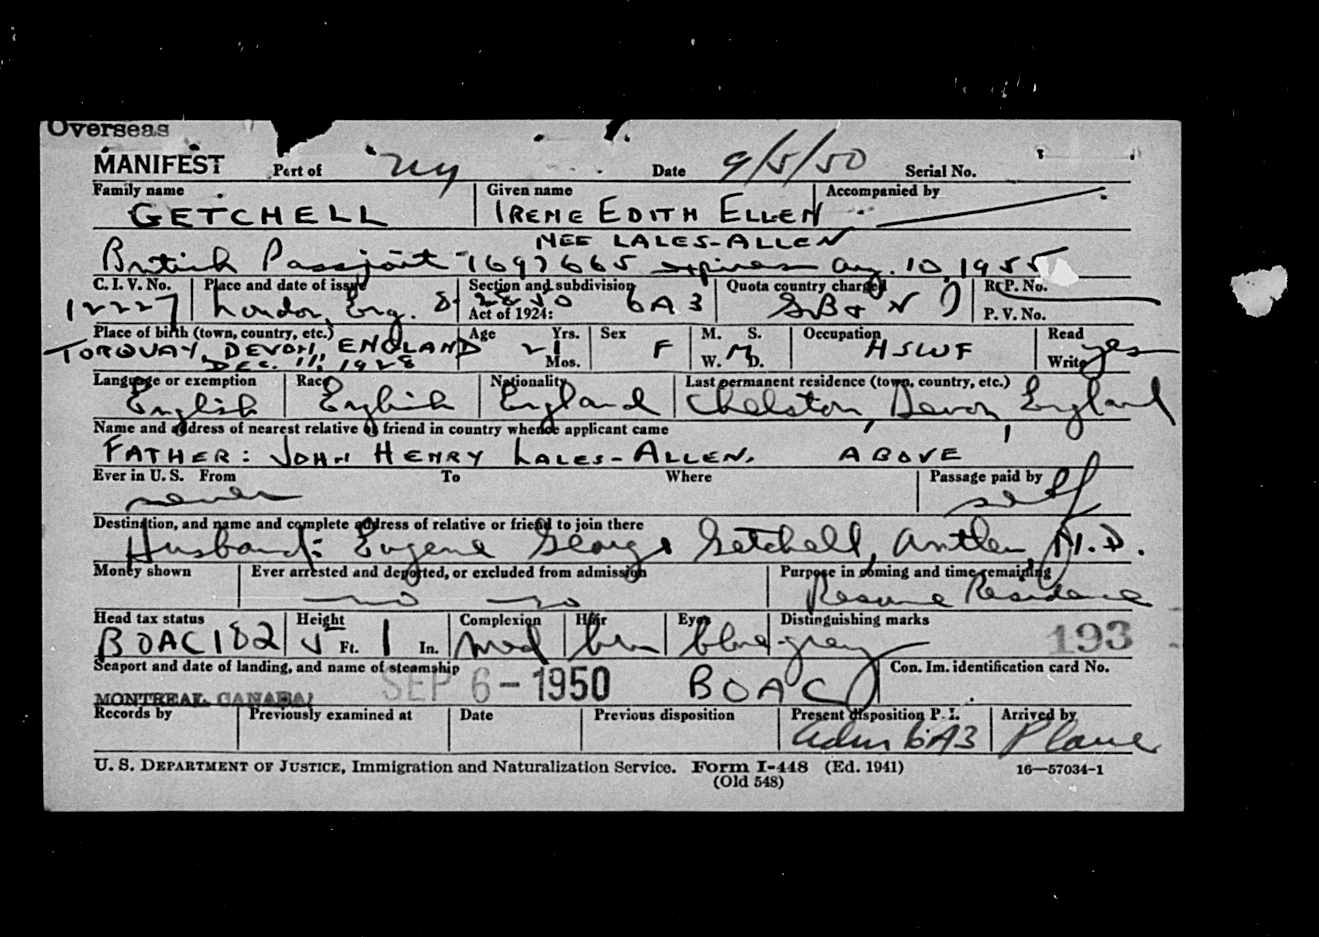 Overseas
MANIFEST Port of NY Date 9/5/50 Serial No.
Family name Given name Accompanied by
GETCHELL IRENE EDITH ELLEN
NEE LALES-ALLEN
British Passport 1697665 expires Aug. 10, 1955
C. I. V. No. Place and date of issue Section and subdivision Quota country charged R. P. No.
12227 London, Eng. 8-28-50 Act of 1924: 6A3 GB & N I P. V. No.
Place of birth (town, country, etc.) Age Yrs. Sex M. S. Occupation Read
TORQUAY, DEVON, ENGLAND 21 F M HSWF yes
DEC. 11, 1928 Mos. W. D. Write
Language or exemption Race Nationality Last permanent residence (town, country, etc.)
English English England Chelston, Devon, England
Name and address of nearest relative or friend in country whence applicant came
FATHER: JOHN HENRY LALES-ALLEN. ABOVE
Ever in U. S. From To Where Passage paid by
never self
Destination, and name and complete address of relative or friend to join there
Husband: Eugene George Getchell, Antler, N.D.
Money shown Ever arrested and deported, or excluded from admission Purpose in coming and time remaining
no no Resume Residence
Head tax status Height Complexion Hair Eyes Distinguishing marks
BOAC 182 5 Ft. 1 In. med brn blue grey 193
Seaport and date of landing, and name of steamship Con. Im. identification card No.
MONTREAL, CANADA SEP 6 - 1950 BOAC
Records by Previously examined at Date Previous disposition Present disposition P. I. Arrived by
adm 6A3 Plane
U. S. DEPARTMENT OF JUSTICE, Immigration and Naturalization Service. Form I-448 (Ed. 1941) 16—57034-1
(Old 548)